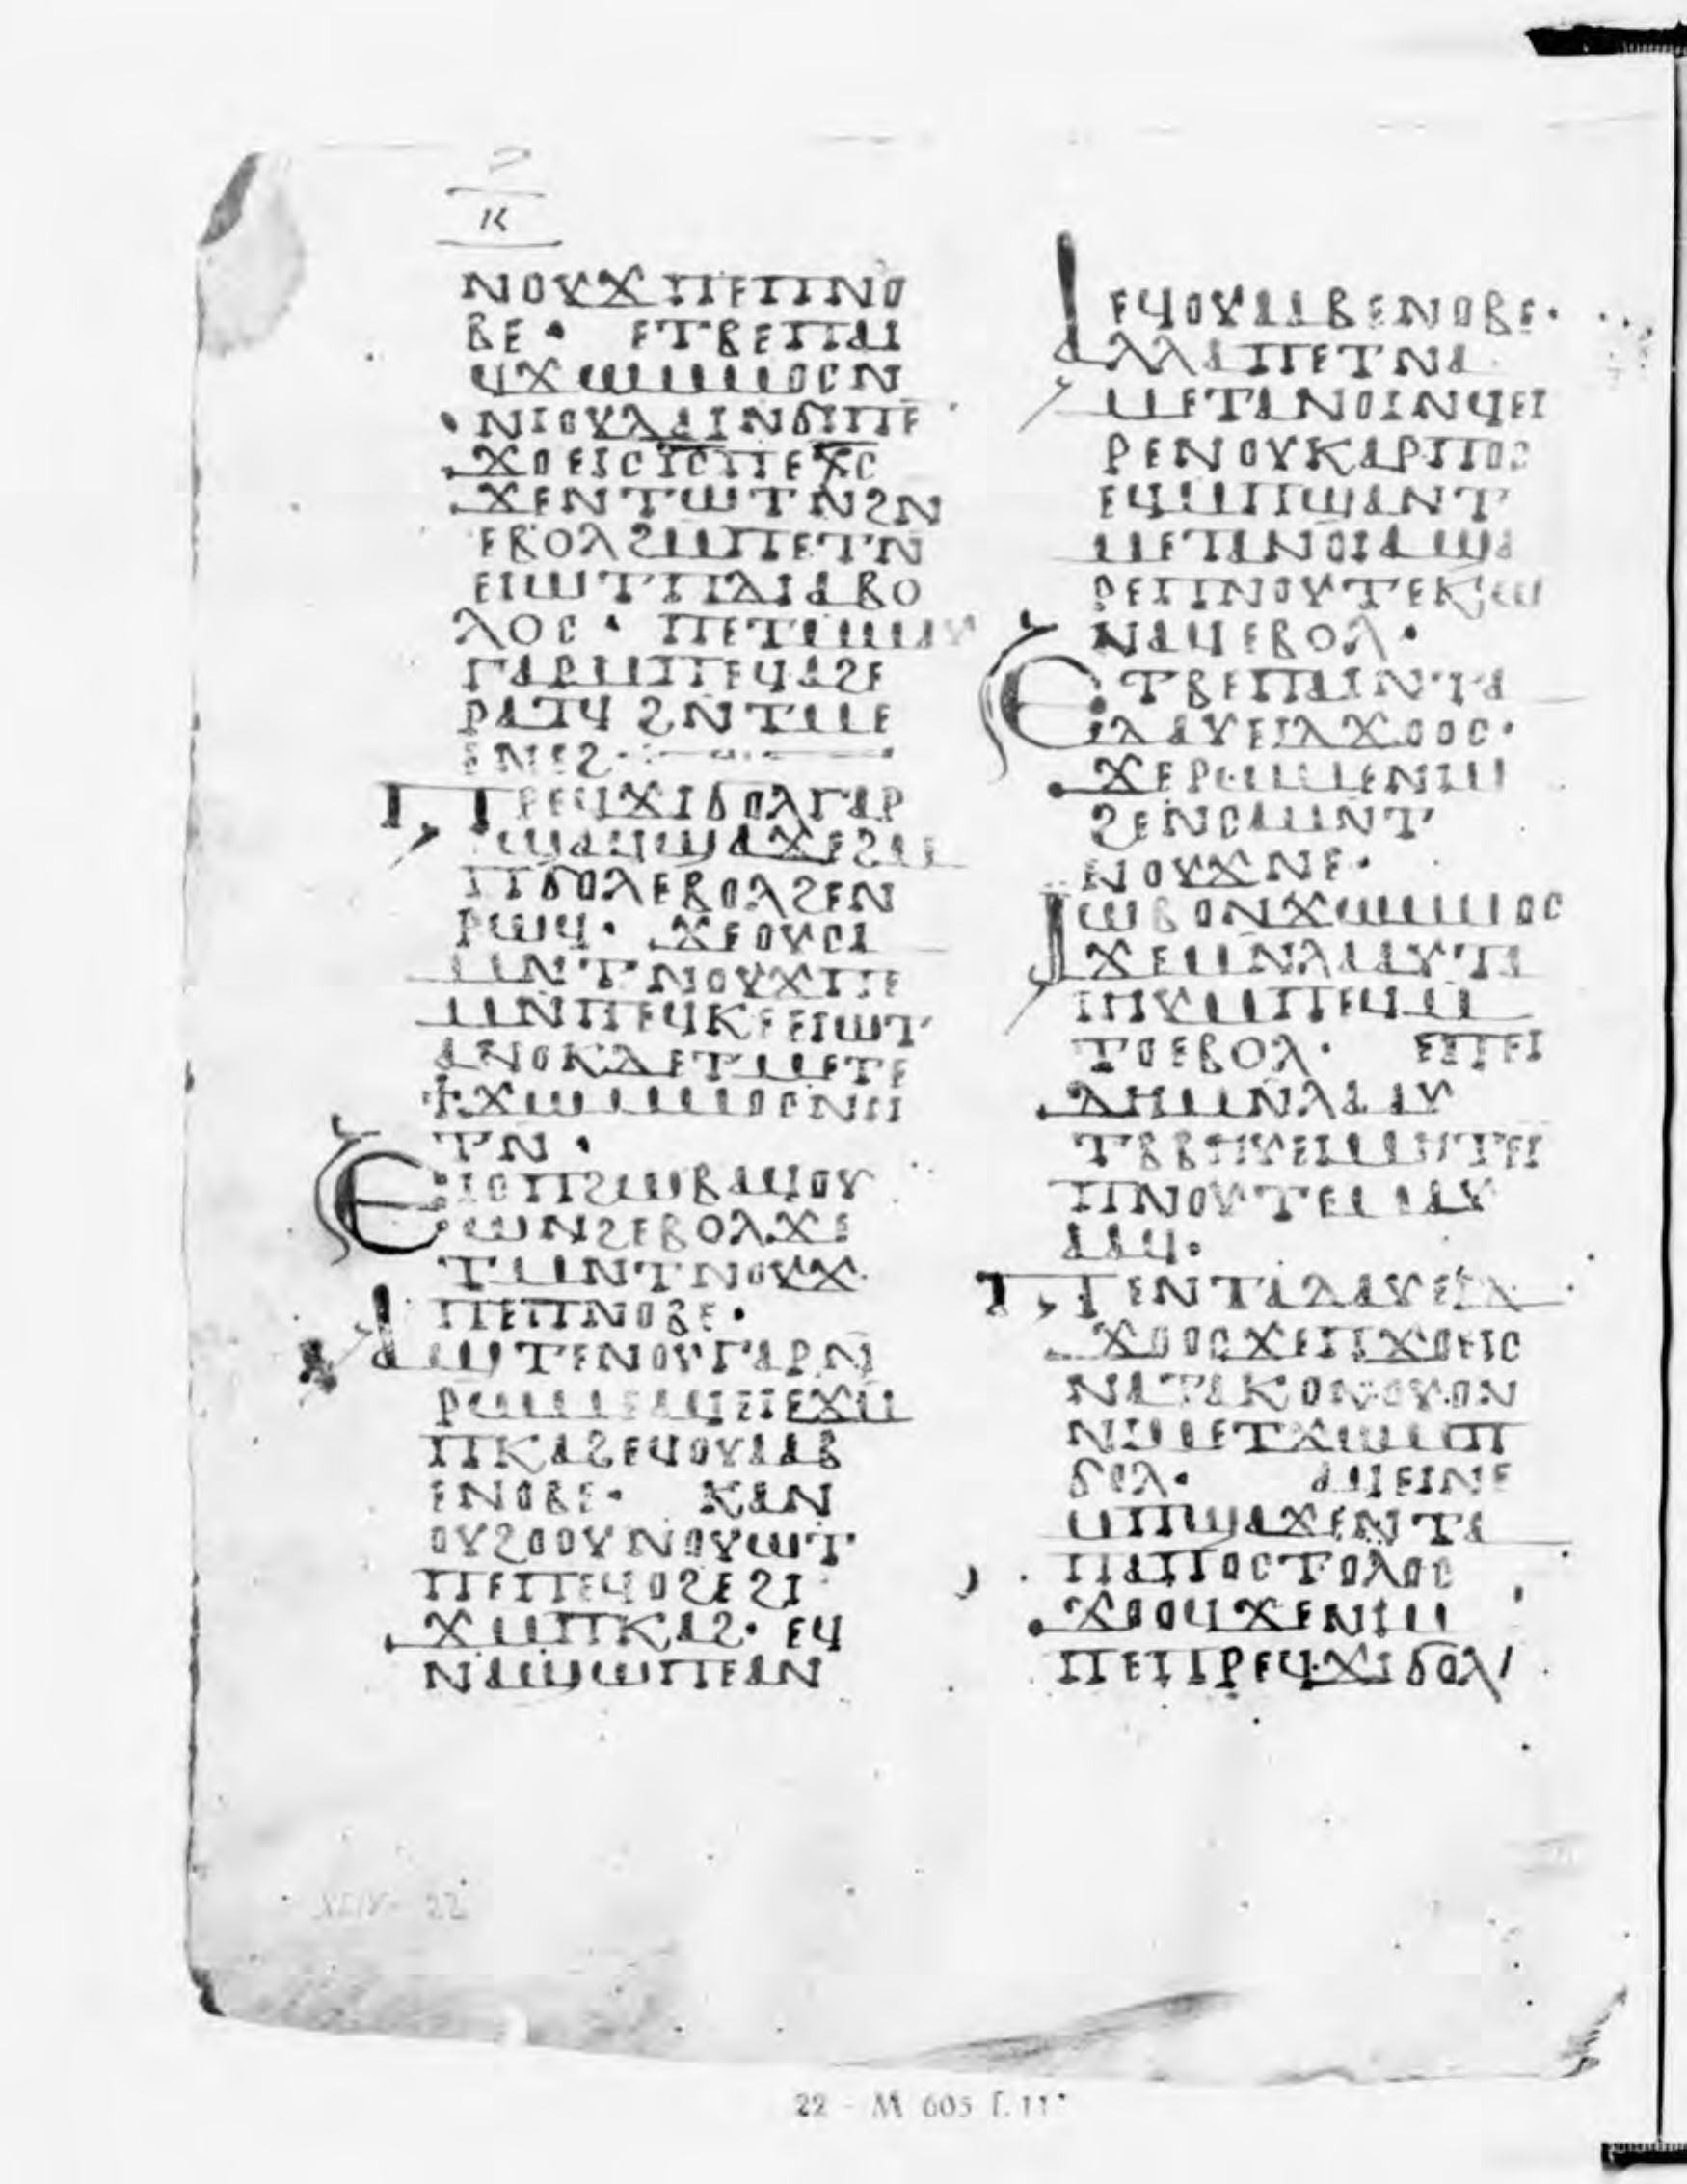 ⲕ
ⲛⲟⲩϫⲡⲉⲡⲛⲟ
ⲃⲉ· ⲉⲧⲃⲉⲡⲁⲓ
ϥϫⲱⲙⲙⲟⲥⲛ
ⲛⲓⲟⲩⲇⲁⲓⲛϭⲓⲡⲉ
ϫⲟⲉⲓⲥⲓ̅ⲥ̅ⲡⲉⲭ̅ⲥ̅
ϫⲉⲛⲧⲱⲧⲛϩⲛ
ⲉⲃⲟⲗϩⲙⲡⲉⲧⲛ
ⲉⲓⲱⲧⲡⲇⲓⲁⲃⲟ
ⲗⲟⲥ· ⲡⲉⲧⲙⲙⲁⲩ
ⲅⲁⲣⲙⲡⲉϥⲁϩⲉ
ⲣⲁⲧϥϩⲛⲧⲙⲉ
ⲉⲛⲉϩ
ⲡⲣⲉϥϫⲓϭⲟⲗⲅⲁⲣ
ϣⲁϥϣⲁϫⲉϩⲙ
ⲡϭⲟⲗⲉⲃⲟⲗϩⲉⲛ
ⲣⲱϥ· ϫⲉⲟⲩⲥⲁ
ⲙⲛⲧⲛⲟⲩϫⲡⲉ
ⲙⲛⲡⲉϥⲕⲉⲉⲓⲱⲧ
ⲁⲛⲟⲕⲇⲉⲧⲙⲉⲧⲉ
ϯϫⲱⲙⲙⲟⲥⲛⲏ
ⲧⲛ·
ⲉⲓⲥⲡϩⲱⲃⲁϥⲟⲩ
ⲱⲛϩⲉⲃⲟⲗϫⲉ
ⲧⲙⲛⲧⲛⲟⲩϫ
ⲡⲉⲡⲛⲟⲃⲉ·
ⲁϣⲧⲉⲛⲟⲩⲅⲁⲣⲛ
ⲣⲱⲙⲉⲁϥⲉⲓⲉϫⲙ
ⲡⲕⲁϩⲉϥⲟⲩⲁⲁⲃ
ⲉⲛⲟⲃⲉ· ⲕⲁⲛ
ⲟⲩϩⲟⲟⲩⲛⲟⲩⲱⲧ
ⲡⲉⲡⲉϥⲟϩⲉϩⲓ
ϫⲙⲡⲕⲁϩ· ⲉϥ
ⲛⲁϣⲱⲡⲉⲁⲛ
ⲉϥⲟⲩⲁⲁⲃⲉⲛⲟⲃⲉ·
ⲁⲗⲗⲁⲡⲉⲧⲛⲁ
ⲙⲉⲧⲁⲛⲟⲓⲛϥⲉⲓ
ⲣⲉⲛⲟⲩⲕⲁⲣⲡⲟⲥ
ⲉϥⲙⲡϣⲁⲛⲧ
ⲙⲉⲧⲁⲛⲟⲓⲁϣⲁ
ⲣⲉⲡⲛⲟⲩⲧⲉⲕⲱ
ⲛⲁϥⲉⲃⲟⲗ·
ⲉⲧⲃⲉⲡⲁⲓⲛⲧⲁ
ⲇⲁⲩⲉⲓⲇϫⲟⲟⲥ·
ϫⲉⲣⲱⲙⲉⲛⲓⲙ
ϩⲉⲛⲥⲁⲙⲛⲧ
ⲛⲟⲩϫⲛⲉ·
ⲓⲱⲃⲟⲛϫⲱⲙⲙⲟⲥ
ϫⲉⲙⲛⲗⲁⲁⲩⲧⲃ
ⲃⲏⲩⲙⲡⲉϥⲙ
ⲧⲟⲉⲃⲟⲗ· ⲉⲡⲉⲓ
ⲇⲏⲙⲛⲗⲁⲁⲩ
ⲧⲃⲃⲏⲩⲉⲓⲙⲏⲧⲉⲓ
ⲡⲛⲟⲩⲧⲉⲙⲁⲩ
ⲁⲁϥ·
ⲡⲉⲛⲧⲁⲇⲁⲩⲉⲓⲇ
ϫⲟⲟⲥϫⲉⲡϫⲟⲉⲓⲥ
ⲛⲁⲧⲁⲕⲟⲛⲟⲩⲟⲛ
ⲛⲓⲙⲉⲧϫⲱⲙⲡ
ϭⲟⲗ· ⲁϥⲉⲓⲛⲉ
ⲙⲡϣⲁϫⲉⲛⲧⲁ
ⲡⲁⲡⲟⲥⲧⲟⲗⲟⲥ
ϫⲟⲟϥϫⲉⲛⲓⲙ
ⲡⲉⲡⲣⲉϥϫⲓϭⲟⲗ/
22 - M 605 f. 11ᵛ